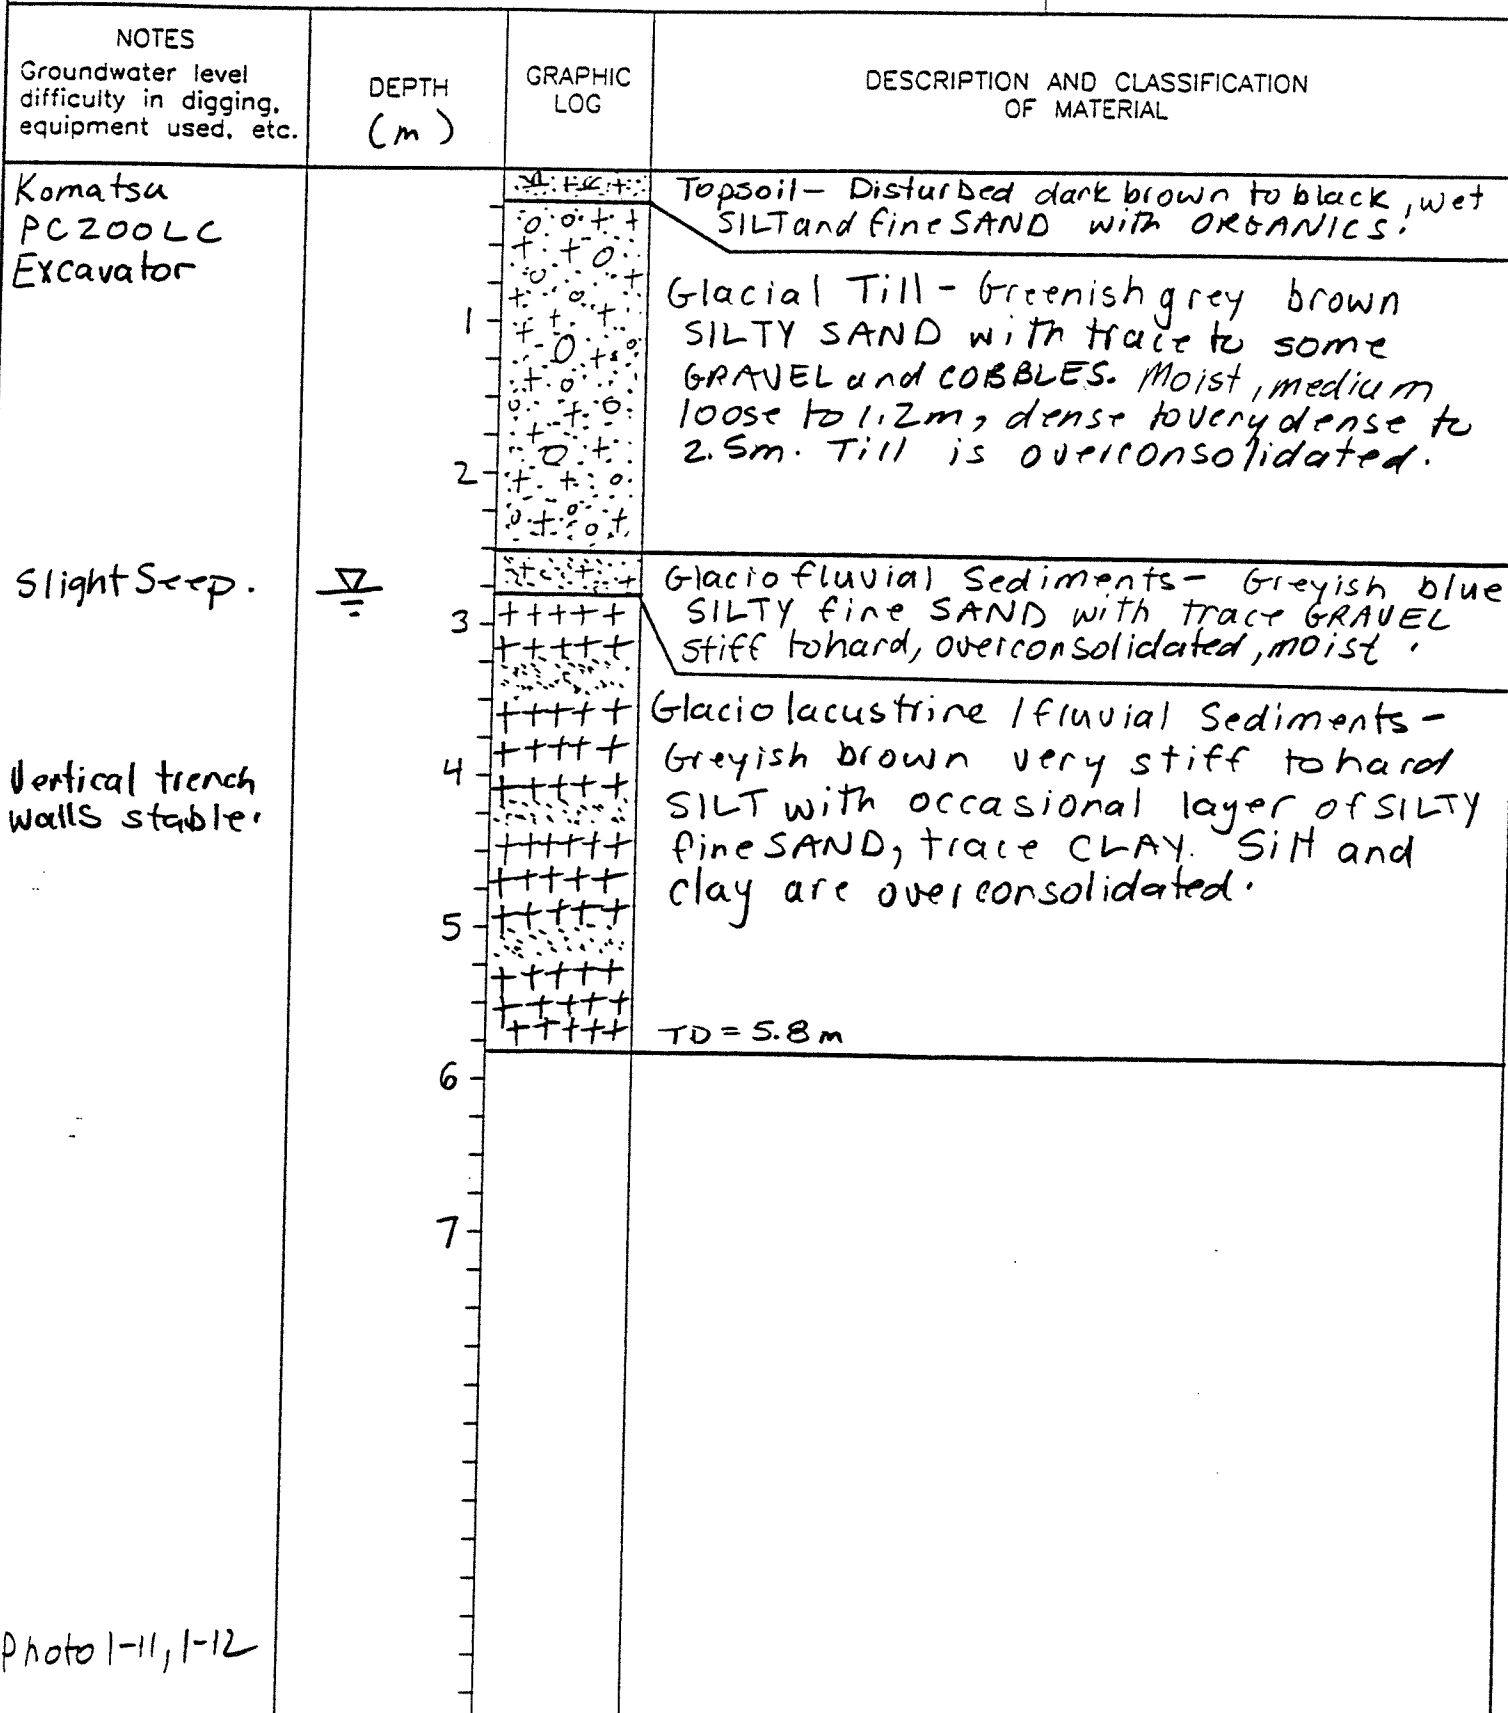 NOTES
Groundwater level
difficulty in digging,
equipment used, etc.
DEPTH
(m)
GRAPHIC
LOG
DESCRIPTION AND CLASSIFICATION
OF MATERIAL
Komatsu
PC200LC
Excavator
Topsoil- Disturbed dark brown to black, wet
SILT and fine SAND with ORGANICS.
Glacial Till - Greenish grey brown
SILTY SAND with trace to some
GRAVEL and COBBLES. Moist, medium
loose to 1.2m, dense to very dense to
2.5m. Till is overconsolidated.
1
2
Slight Seep.
Glaciofluvial Sediments- Greyish blue
SILTY fine SAND with trace GRAVEL
stiff to hard, overconsolidated, moist.
3
Glaciolacustrine / fluvial Sediments-
Greyish brown very stiff to hard
SILT with occasional layer of SILTY
fine SAND, trace CLAY. Silt and
clay are overconsolidated.
4
Vertical trench
walls stable.
5
TD = 5.8m
6
7
Photo 1-11, 1-12